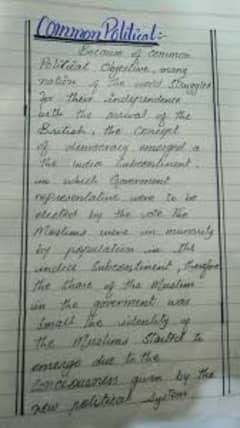 Common Political:-
Because of common
Political Objective, many
nation of the world struggled
for their independence
with the arrival of the
British, the concept
of democracy emerged a
the India Subcontinent.
in which Government
representative were to be
elected by the vote The
Muslims were in minority
by population in the
indica Subcontinent, therefore
the Share of the Muslim
in the goverment was
small the identity of
the Muslims Started to
emerge due to the
given by the
new political System